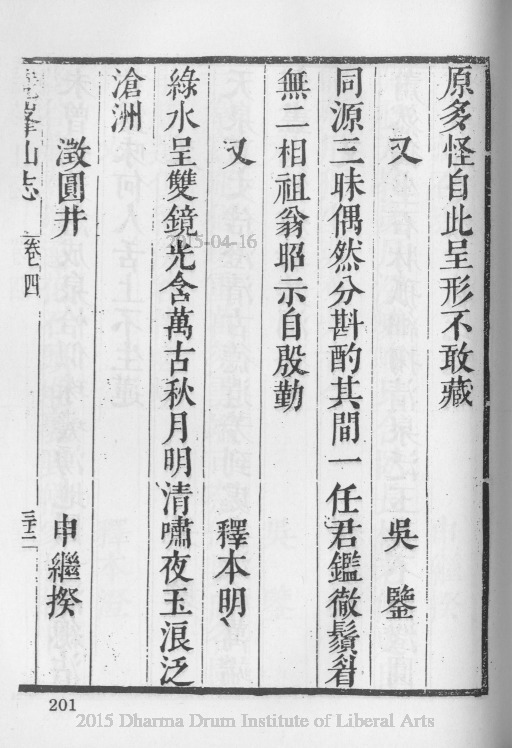 原多怪自此呈形不敢藏
又 吳鑒
同源三昧偶然分斟酌其間一任君鑑徹鬚眉
無二相祖翁昭示自殷勤
又 釋本明
綠水呈雙鏡光含萬古秋月明清嘯夜玉浪泛
滄洲
澂圓井 申繼揆
峯山志 卷四 三十二
201
2015-04-16
2015 Dharma Drum Institute of Liberal Arts